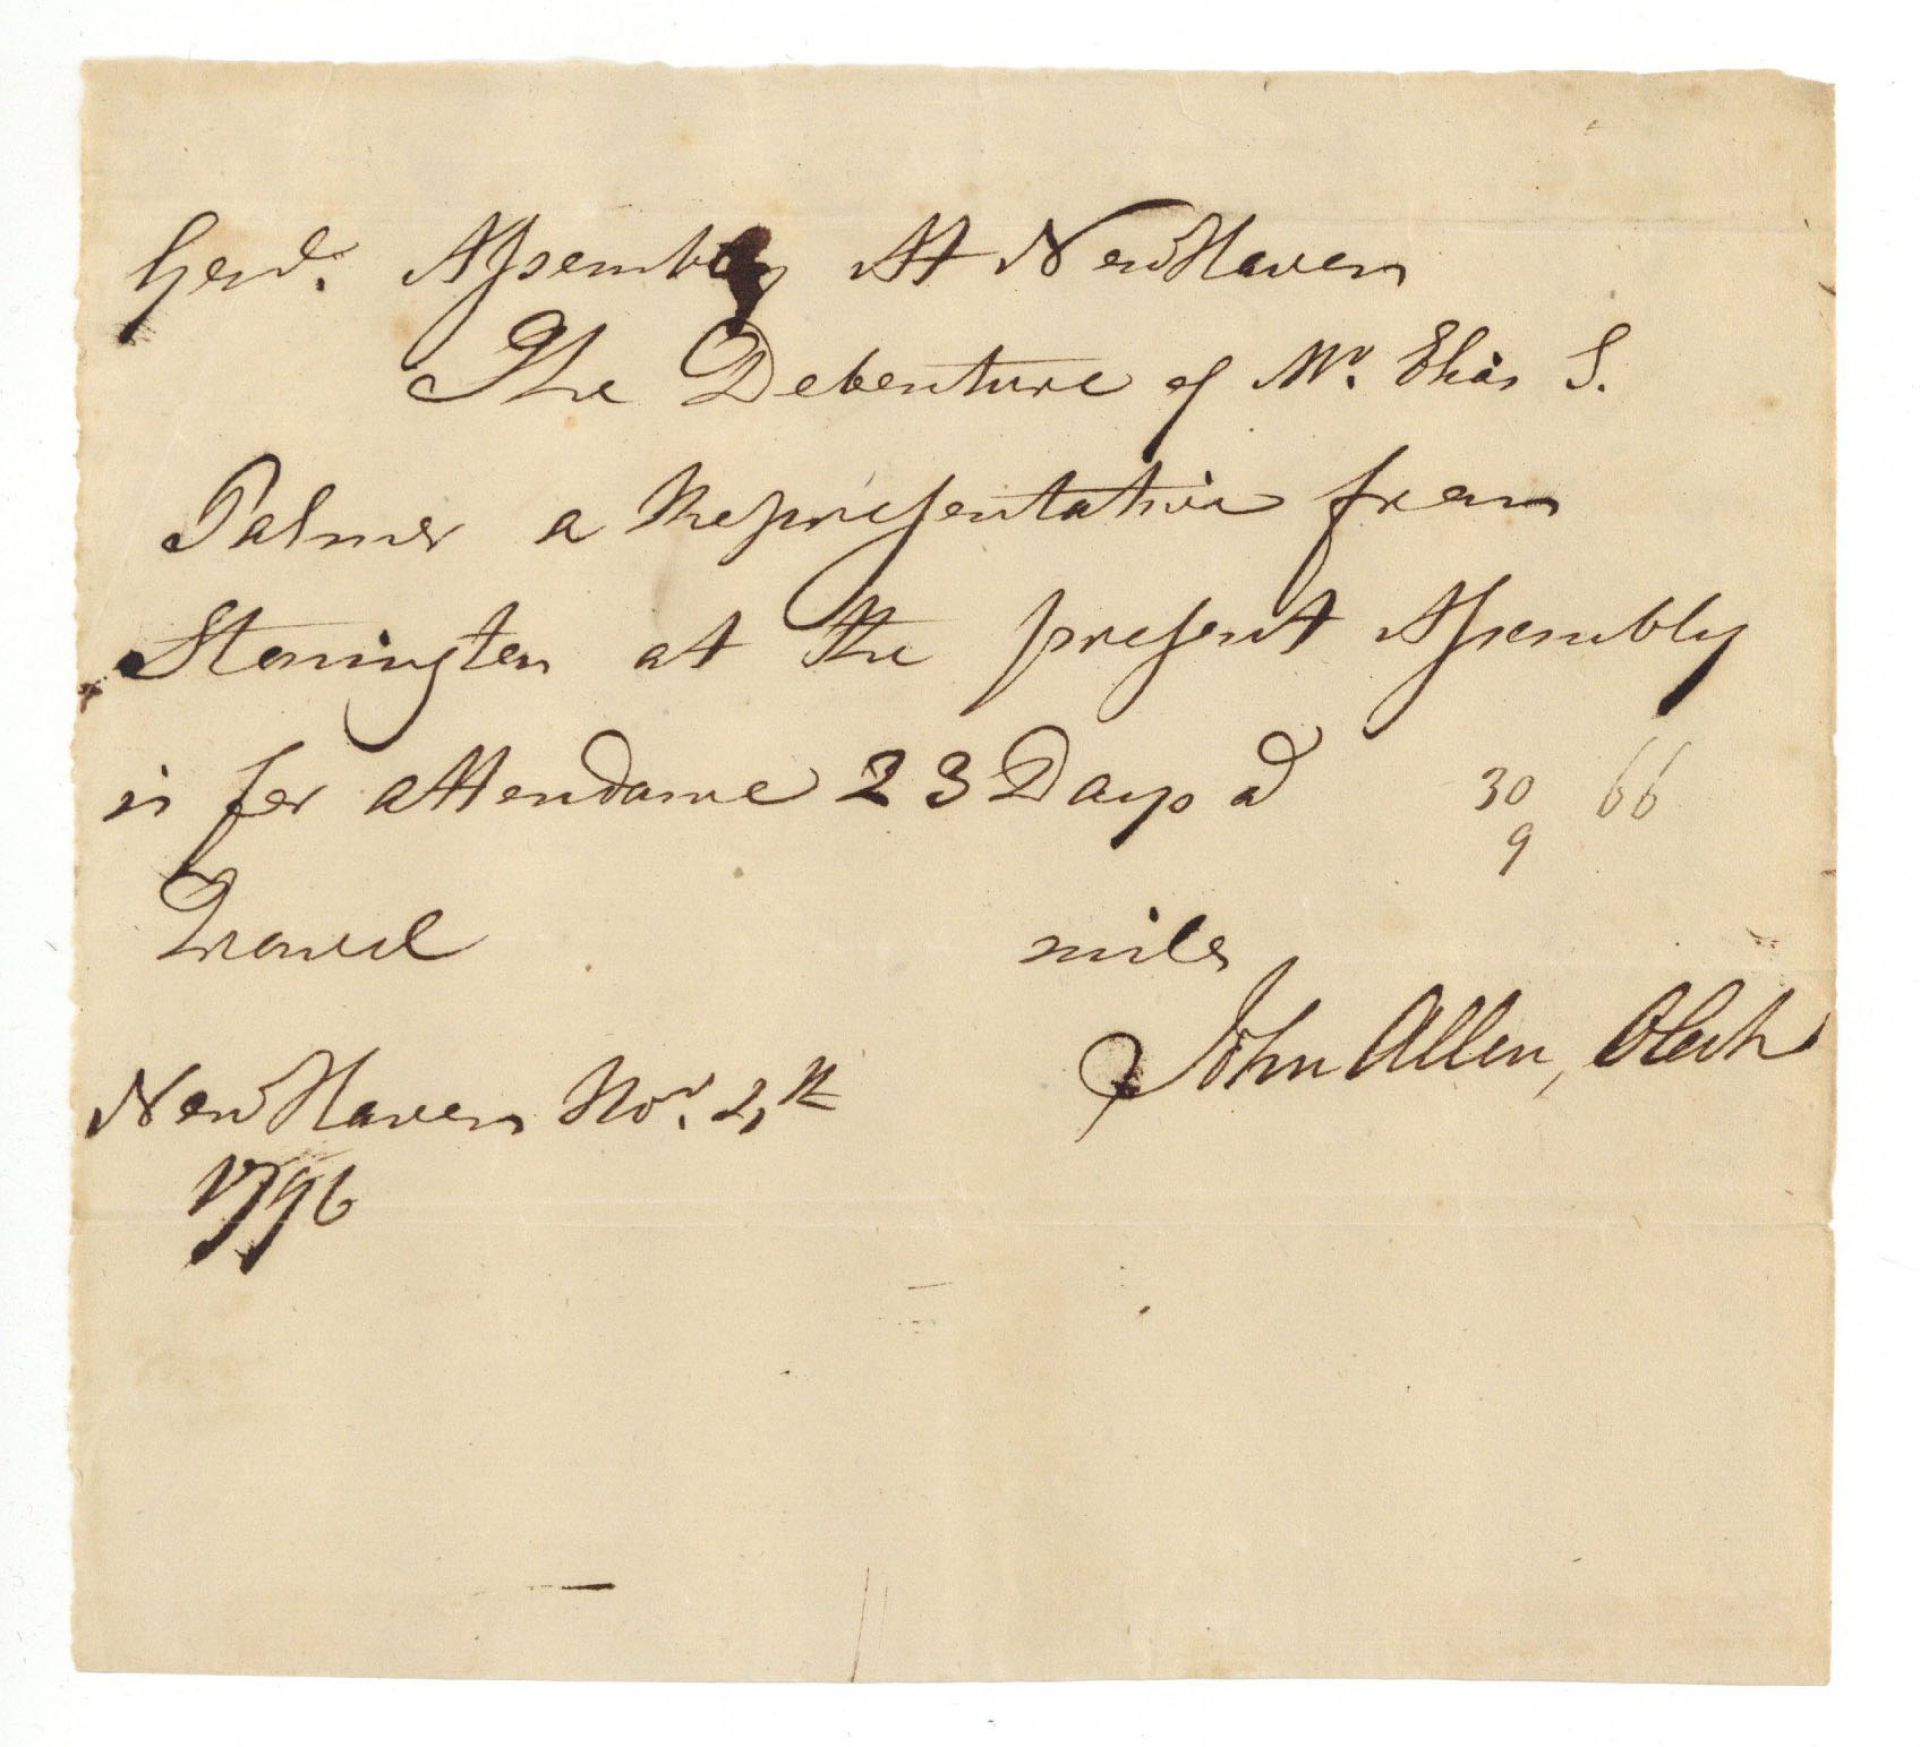 Genl. Assembly At New Haven
The Debenture of Mr. Elias S.
Palmer a Representative from
Stonington at the present Assembly
is for attendance 23 Days a 30 66
9
Travel mile
John Allen, Clerk
New Haven Nov. 2,th
1796